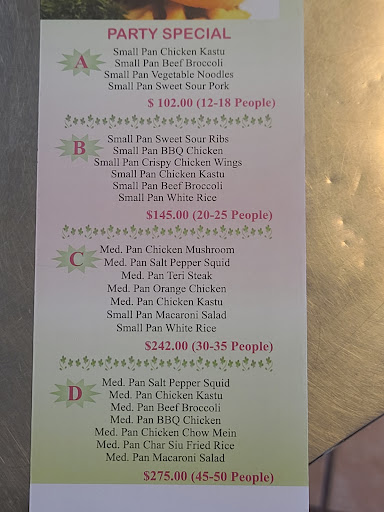 PARTY SPECIAL
A
Small Pan Chicken Kastu
Small Pan Beef Broccoli
Small Pan Vegetable Noodles
Small Pan Sweet Sour Pork
$ 102.00 (12-18 People)
B
Small Pan Sweet Sour Ribs
Small Pan BBQ Chicken
Small Pan Crispy Chicken Wings
Small Pan Chicken Kastu
Small Pan Beef Broccoli
Small Pan White Rice
$145.00 (20-25 People)
C
Med. Pan Chicken Mushroom
Med. Pan Salt Pepper Squid
Med. Pan Teri Steak
Med. Pan Orange Chicken
Med. Pan Chicken Kastu
Small Pan Macaroni Salad
Small Pan White Rice
$242.00 (30-35 People)
D
Med. Pan Salt Pepper Squid
Med. Pan Chicken Kastu
Med. Pan Beef Broccoli
Med. Pan BBQ Chicken
Med. Pan Chicken Chow Mein
Med. Pan Char Siu Fried Rice
Med. Pan Macaroni Salad
$275.00 (45-50 People)